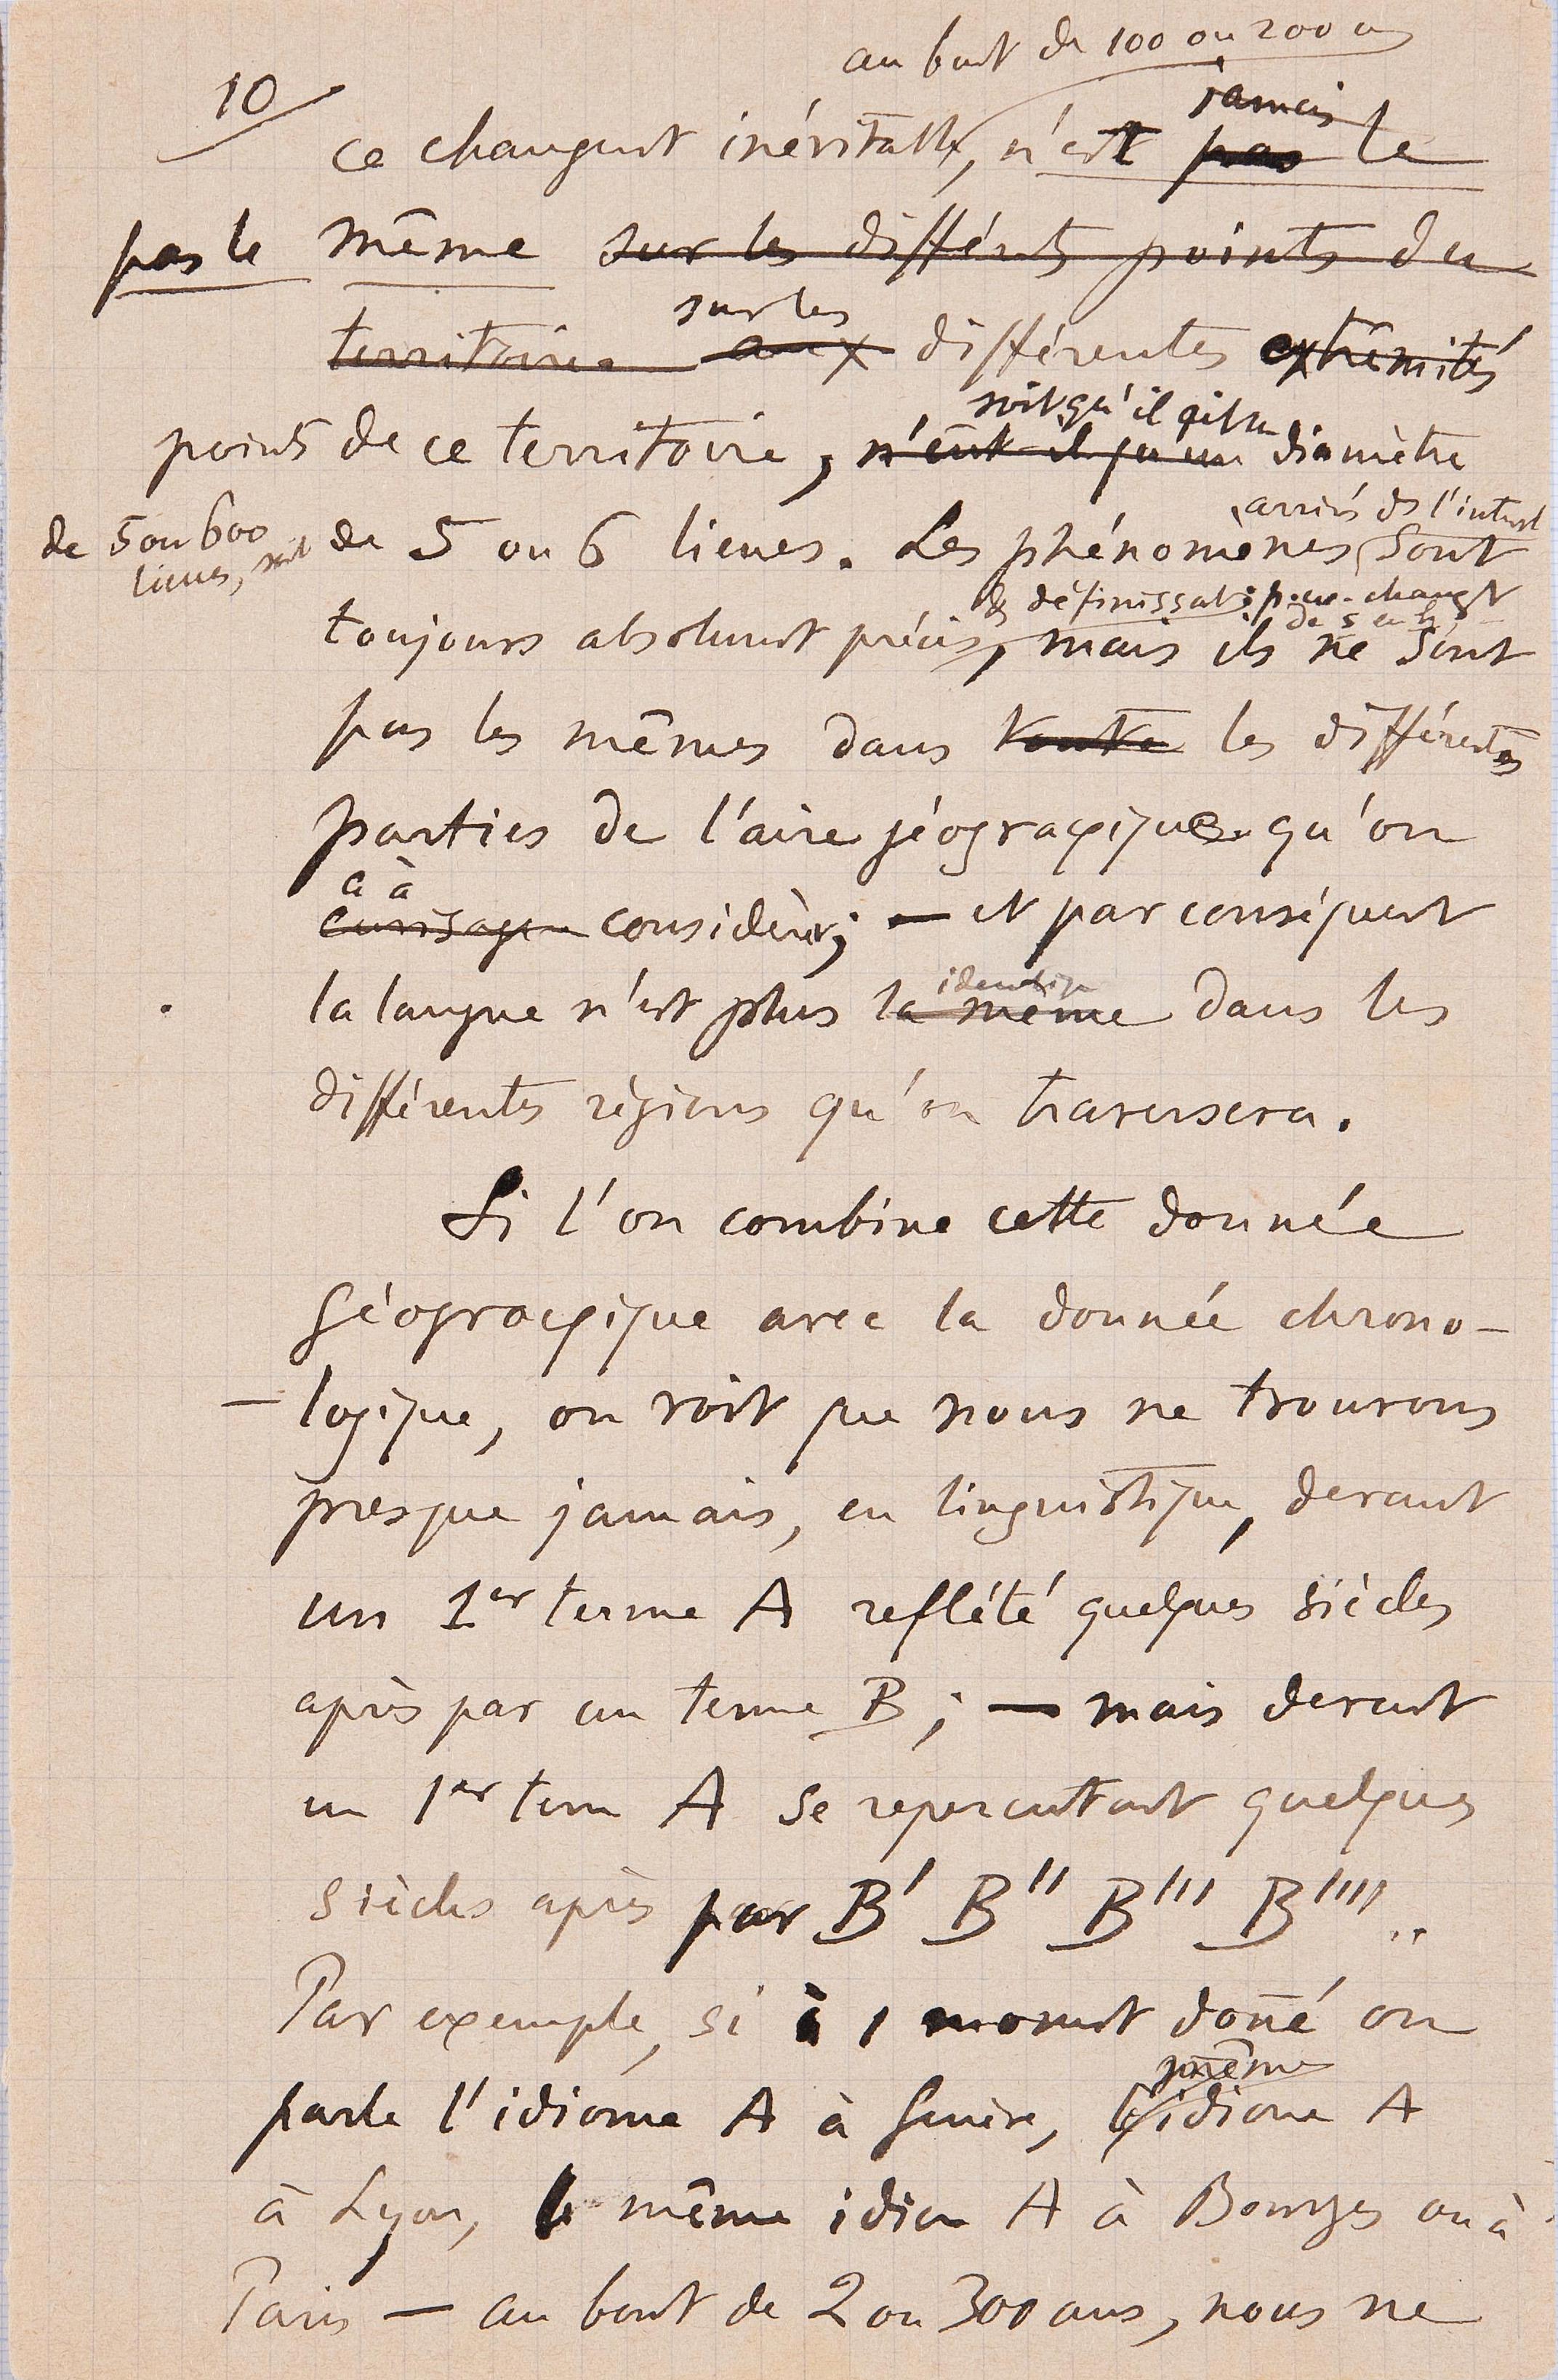 au bout de 100 ou 200 ans
10
jamais
ce changement inévitable, n'est pas le
pas le même sur les différents points du
sur les
territoire. aux différentes extrêmités
soit qu'il ait un
points de ce territoire, n'eût-il qu'un diamètre
arrivés de l'intervalle
de 5 ou 600 lieues, soit
de 5 ou 6 lieues. Les phénomènes sont
toujours absolument précis, mais ils ne sont
pas les mêmes dans toute les différentes
parties de l'aire géographique qu'on
a à
envisagera considérer; — et par conséquent
identique
la langue n'est plus la même dans les
différentes régions qu'on traversera.
Si l'on combine cette donnée
géographique avec la donnée chrono-
-logique, on voit que nous ne trouvons
presque jamais, en linguistique, devant
un 1er terme A reflété quelques siècles
après par un terme B; — mais devant
un 1er term A se repercutant quelques
siècles après par B' B'' B''' B''''..
Par exemple, si à 1 moment doñé on
même
parle l'idiome A à Genève, l'idiome A
à Lyon, le même idiom A à Bourges ou à
Paris — au bout de 2 ou 300 ans, nous ne